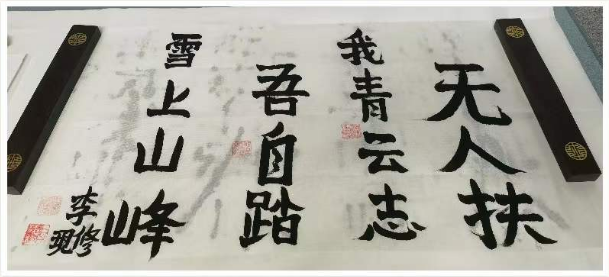 无人扶
我青云志
吾自踏
雪上山峰
李修现